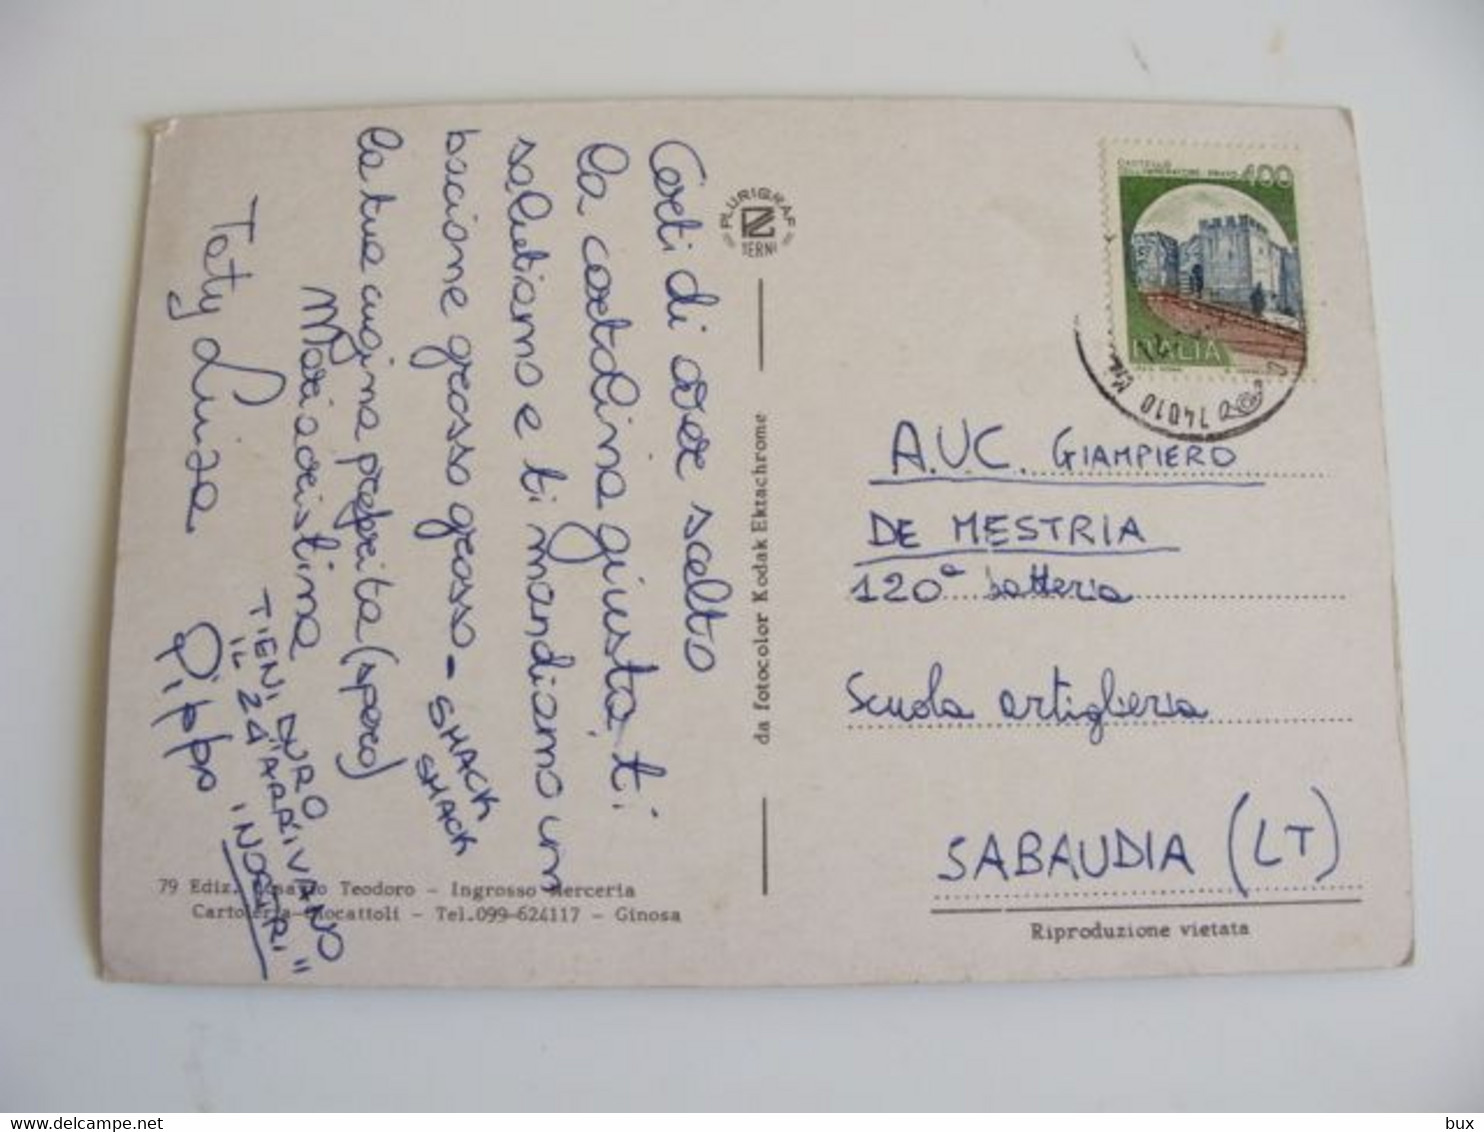 Certi di aver scelto
la cartolina giusta, ti
salutiamo e ti mandiamo un
bacione grosso grosso - SMACK
SMACK
la tua cugina preferita (spero)
Mariacristina
Taty Luisa Pippo
TIENI DURO
IL 24 "ARRIVANO
I NOSTRI"
PLURIGRAF
TERNI
da fotocolor Kodak Ektachrome
79 Ediz. Teodoro - Ingrosso Merceria
Cartoleria-Giocattoli - Tel.099-624117 - Ginosa
CASTELLO
DELL'IMPERATORE · PRATO 400
ITALIA
74010
A.U.C. GIAMPIERO
DE MESTRIA
120ª batteria
Scuola artiglieria
SABAUDIA (LT)
Riproduzione vietata
delcampe.net
bux